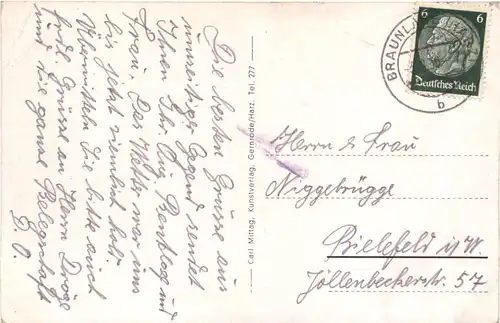 Die besten Grüsse aus
unseitiger Gegend sendet
Ihnen Ihr Eug. und
Frau. Das Wetter war uns
bis jetzt ziemlich hold.
Übermitteln Sie bitte auch
frdl. Grüsse an Herrn Dröge
und die ganze Belegschaft
D. O.
Carl Mittag, Kunstverlag, Gernrode/Harz. Tel. 277
BRAUNL
b
6 6
Deutsches Reich
Herrn & Frau
Niggebrügge
Bielefeld i/W.
Jöllenbeckerstr. 57